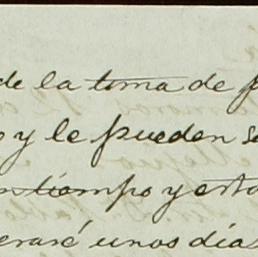 de la toma de
y le pueden
tiempo y esta
unos días